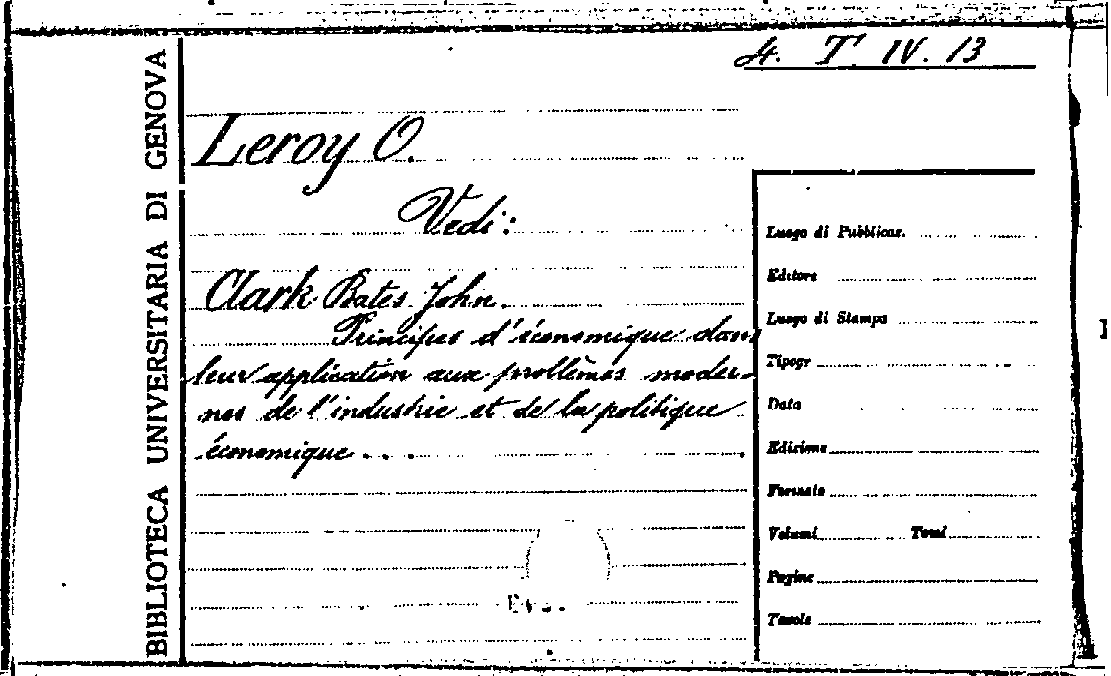 4. T. IV. 13
BIBLIOTECA UNIVERSITARIA DI GENOVA
Leroy O.
Vedi:
Clark Bates John.
Principes d'économique dans
leur application aux problèmes moder-
nes de l'industrie et de la politique
économique ...
Luogo di Pubblicaz.
Editore
Luogo di Stampa
Tipogr
Data
Edizione
Formato
Volumi Tomi
Pagine
Tavole